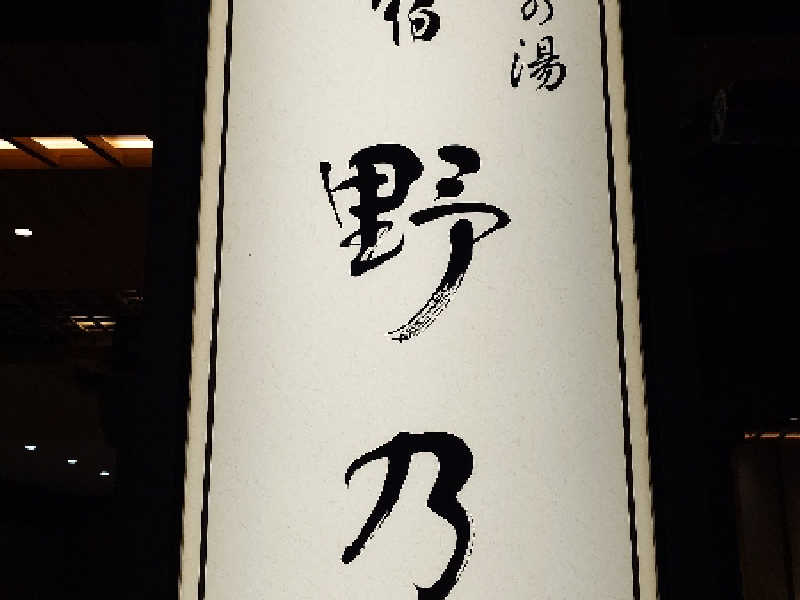 の湯
宿 野乃